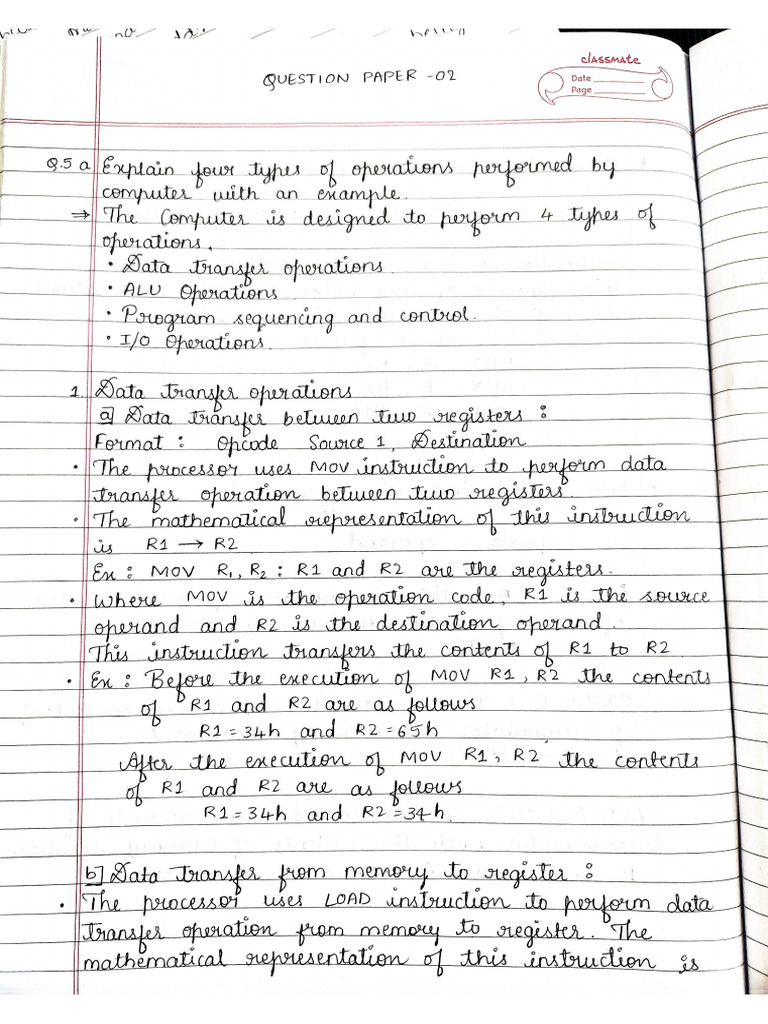 classmate
Date
Page
QUESTION PAPER -02
Q.5 a Explain four types of operations performed by
computer with an example.
⇒ The Computer is designed to perform 4 types of
operations.
• Data transfer operations.
• ALU Operations
• Program sequencing and control.
• I/O Operations.
1. Data transfer operations
a] Data transfer between two registers :
Format : Opcode Source 1, Destination
• The processor uses MOV instruction to perform data
transfer operation between two registers.
• The mathematical representation of this instruction
is R1 → R2
Ex : MOV R1, R2 : R1 and R2 are the registers.
• Where MOV is the operation code, R1 is the source
operand and R2 is the destination operand.
This instruction transfers the contents of R1 to R2.
• Ex : Before the execution of MOV R1, R2 the contents
of R1 and R2 are as follows
R1 = 34h and R2 = 65h
After the execution of MOV R1, R2, the contents
of R1 and R2 are as follows
R1 = 34h and R2 = 34h.
b] Data transfer from memory to register :
• The processor uses LOAD instruction to perform data
transfer operation from memory to register. The
mathematical representation of this instruction is